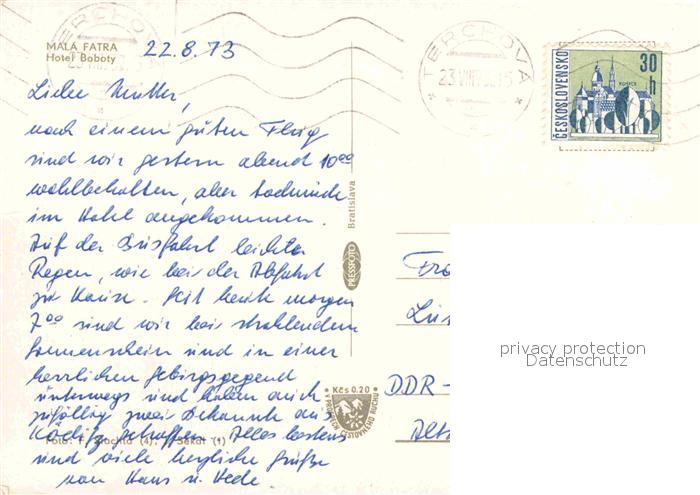 MALÁ FATRA
Hotel Boboty
22.8.73
Liebe Mutter,
nach einem guten Flug
sind wir gestern abend 10⁰⁰
wohlbehalten, aber todmüde
im Hotel angekommen.
Auf der Busfahrt leichter
Regen, wie bei der Abfahrt
zu Hause. Seit heute morgen
7⁰⁰ sind wir bei strahlendem
Sonnenschein und in einer
herrlichen Gebirgsgegend
unterwegs und haben auch
zufällig zwei Bekannte aus
getroffen. Alles bestens
und viele herzliche Grüße
von Hans u. Hede.
Foto: (4), Sekal (1)
Bratislava
PRESSFOTO
Kčs 0.20
V PROSPĚCH CESTOVNÍHO RUCHU
TERCHOVÁ
TERCHOVÁ
23.VIII
ČESKOSLOVENSKO
30 h
DDR -
privacy protection
Datenschutz